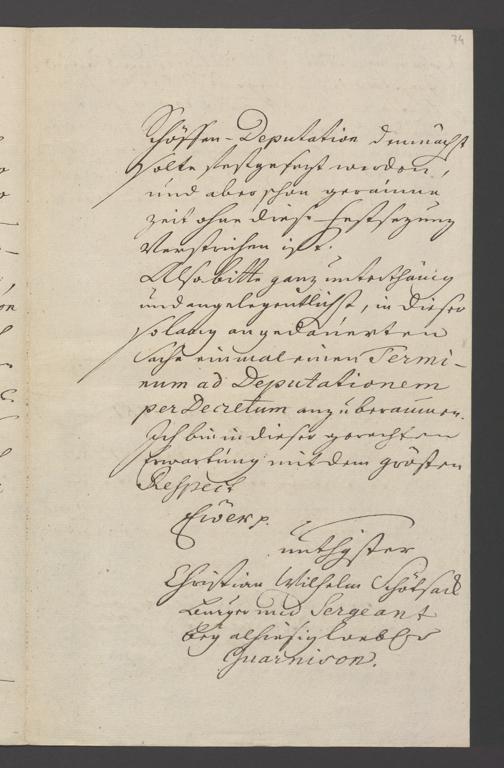 74
Schöffen-Deputation demnächst
solte festgesezt werden,
und aber schon geraume
Zeit ohne diese Festsezung
Verstrichen ist.
Also bitte ganz unterthänig
und angelegentlichst, in dieser
so lang angedauerten
Sache einmal einen Termi-
num ad Deputationem
per Decretum anzuberaumen.
Ich bin in dieser gerechten
Erwartung mit dem grösten
Respect
Euer p.
Christian Wilhelm
Burger und Sergeant
bey alhiesig löbl.
Guarnison.